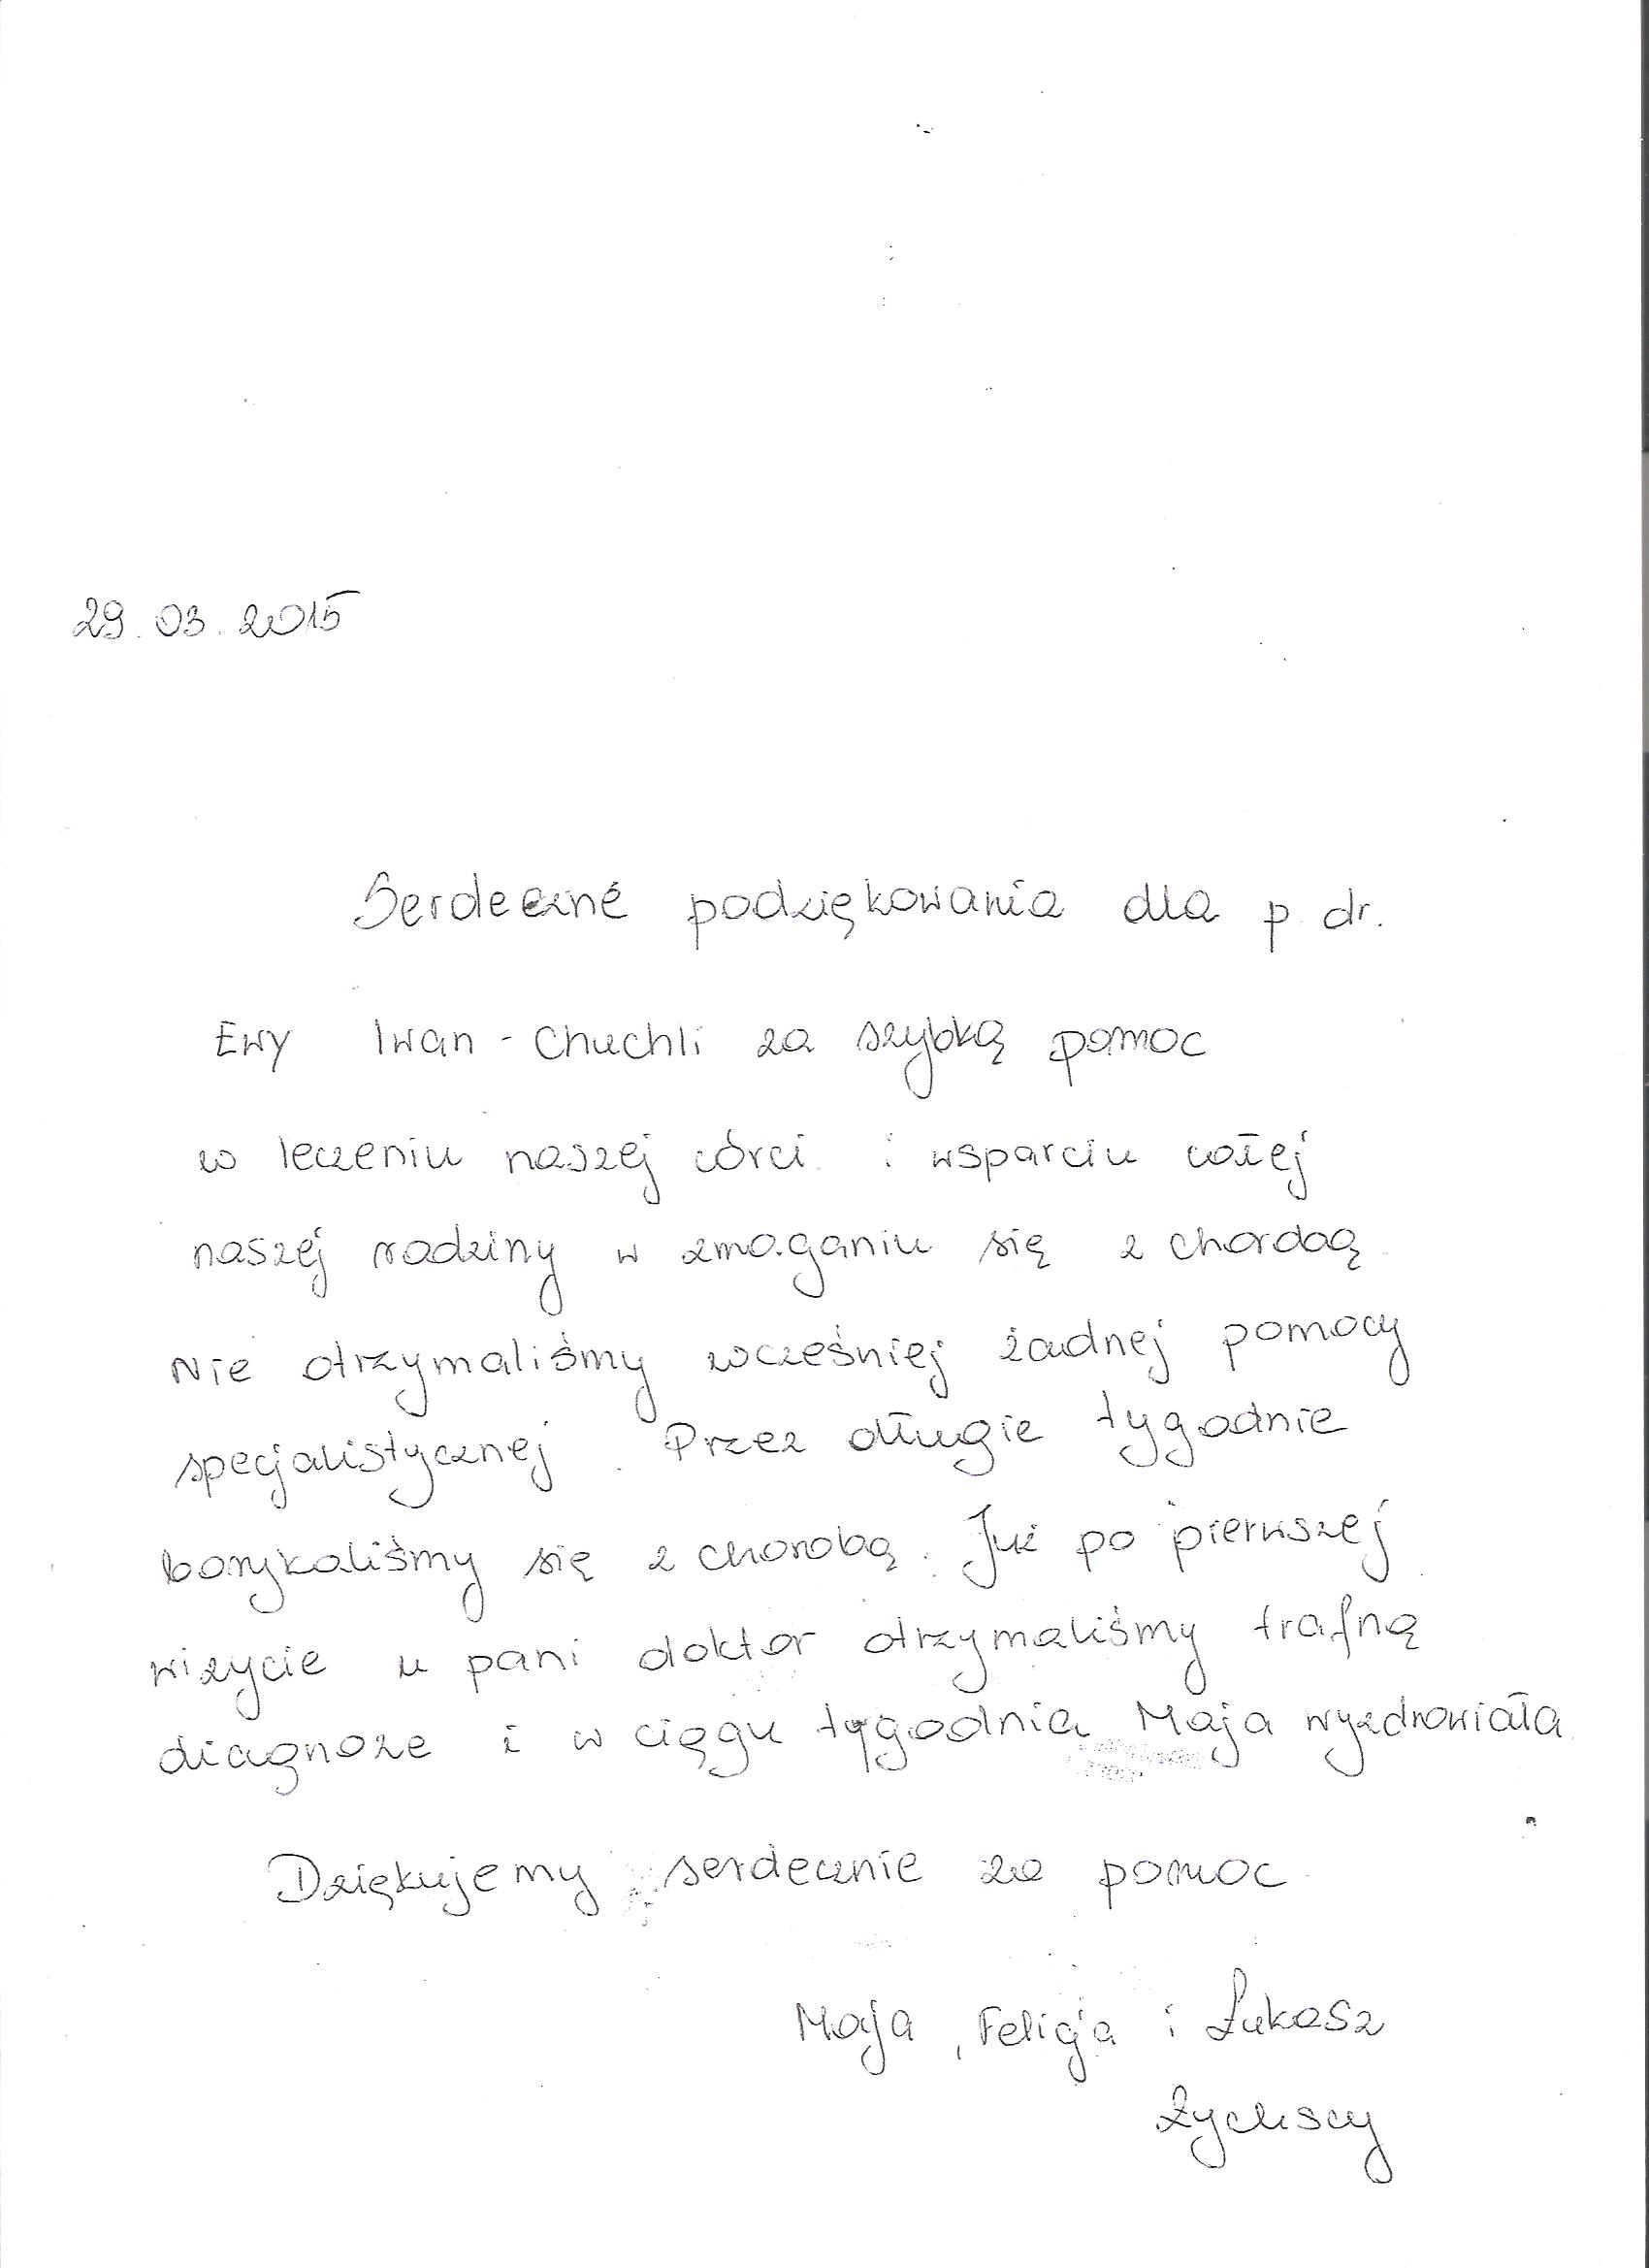 29.03.2015
Serdeczne podziękowania dla p. dr.
Ewy Iwan - Chuchli za szybką pomoc
w leczeniu naszej córci i wsparciu całej
naszej rodziny w zmaganiu się z chorobą.
Nie otrzymaliśmy wcześniej żadnej pomocy
specjalistycznej. Przez długie tygodnie
borykaliśmy się z chorobą. Już po pierwszej
wizycie u pani doktor otrzymaliśmy trafną
diagnoze i w ciągu tygodnia Maja wyzdrowiała.
Dziękujemy serdecznie za pomoc
Maja, Felicja i Łukasz